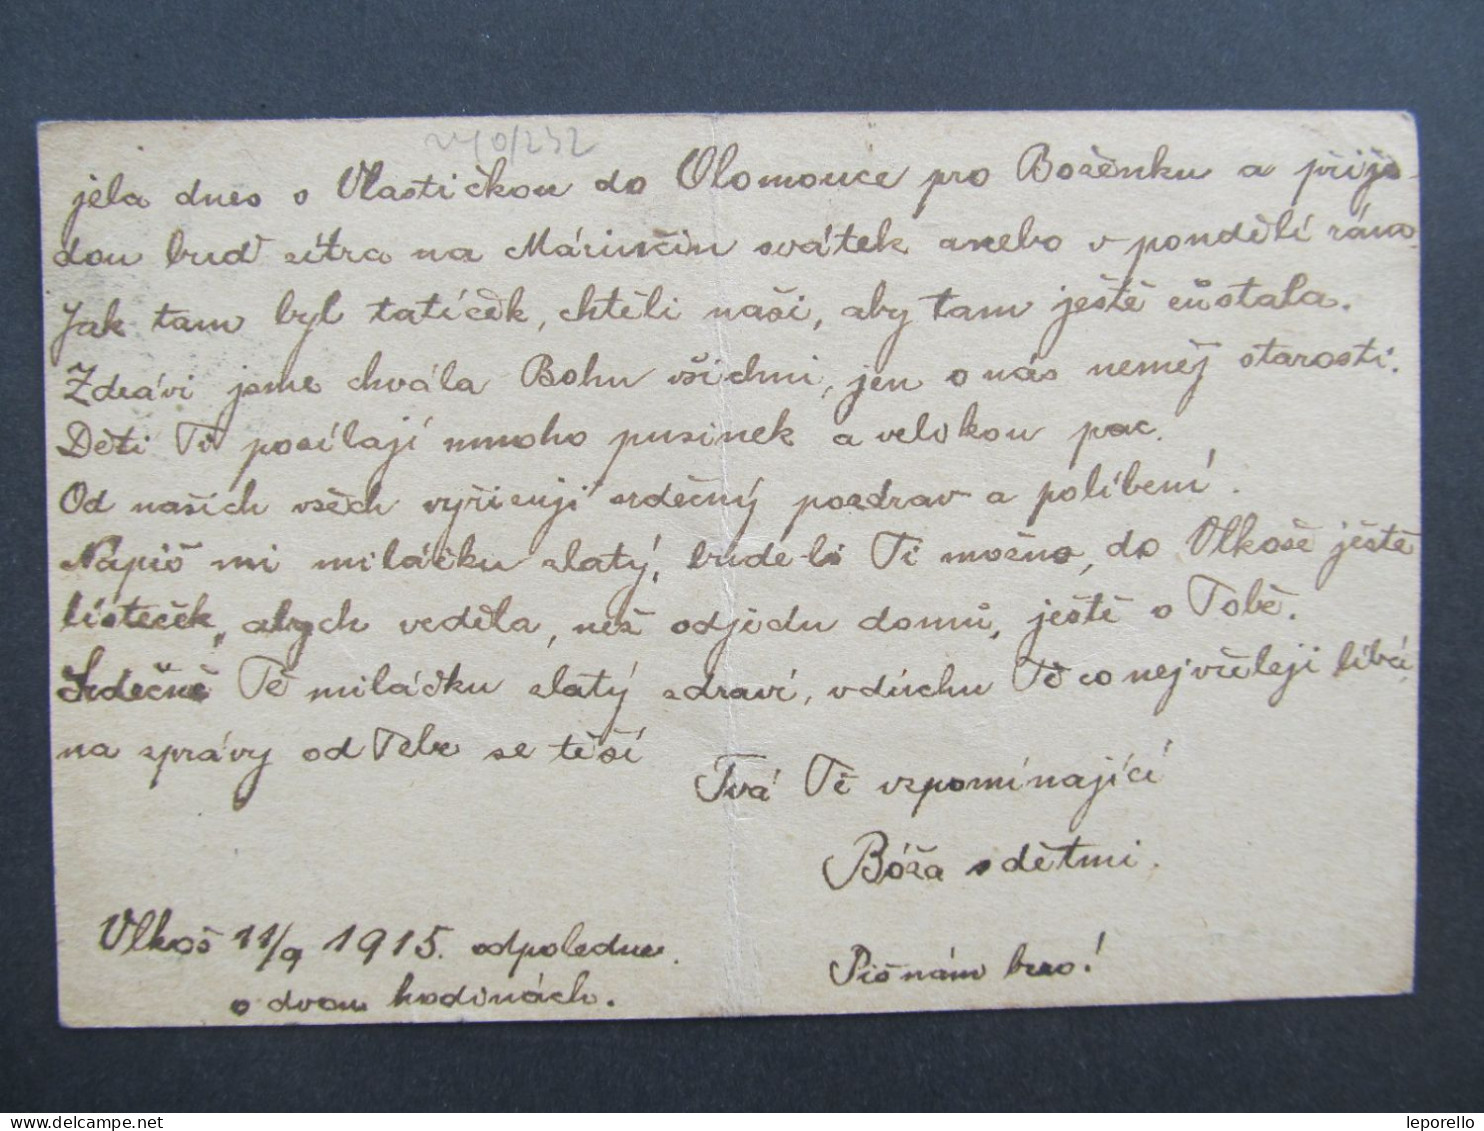 jela dnes s Vlastičkou do Olomouce pro Boženku a přijs-
dou buď zítra na Mářinčin svátek anebo v pondělí ráno.
Jak tam byl tatíček, chtěli naši, aby tam ještě zůstala.
Zdrávi jsme chvála Bohu všichni, jen o nás neměj starosti.
Děti Ti posílají mnoho pusinek a velikou pac.
Od našich všech vyřizuji srdečný pozdrav a políbení.
Napiš mi miláčku zlatý, bude-li Ti možno, do Vlkoše ještě
lísteček, abych věděla, než odjedu domů, ještě o Tobě.
Srdečně Tě miláčku zlatý zdraví, v duchu Tě co nejvřeleji líbá,
na zprávy od Tebe se těší
Tvá Tě vzpomínající
Bóža s dětmi.
Vlkoš 11/9 1915. odpoledne
o dvou hodinách.
Piš nám brzo!
leporello